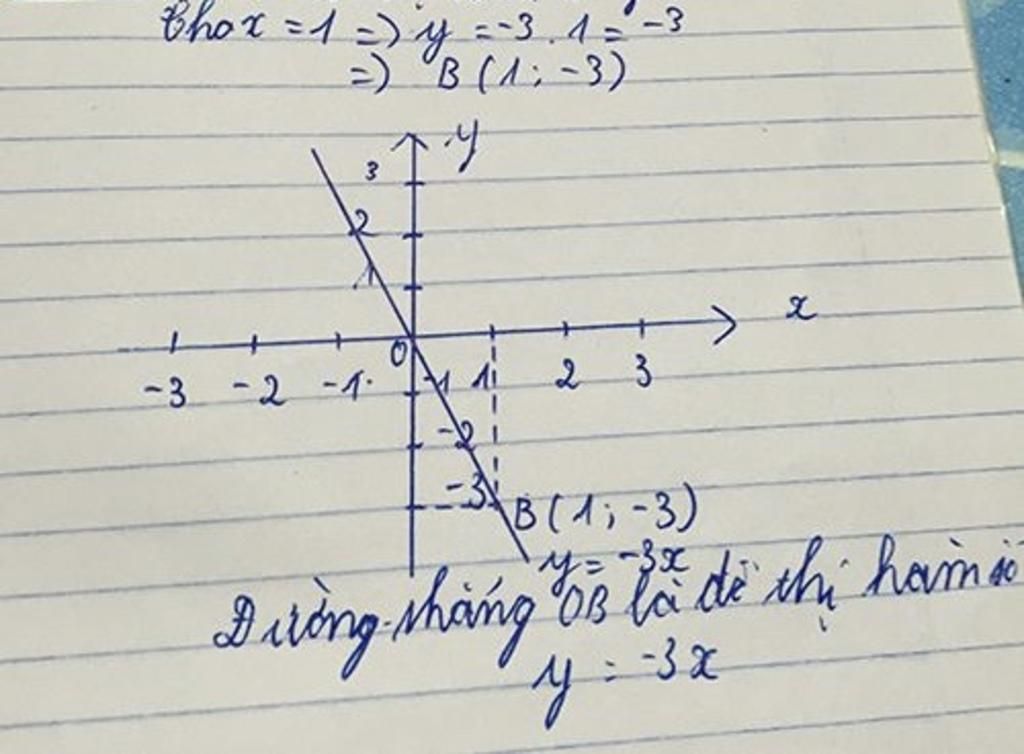 Cho x = 1 => y = -3 . 1 = -3
=> B (1; -3)
y
3
2
1
x
O
-3 -2 -1 -1 1 2 3
-2
-3
B (1; -3)
y = -3x
Đường thẳng OB là đồ thị hàm số
y = -3x